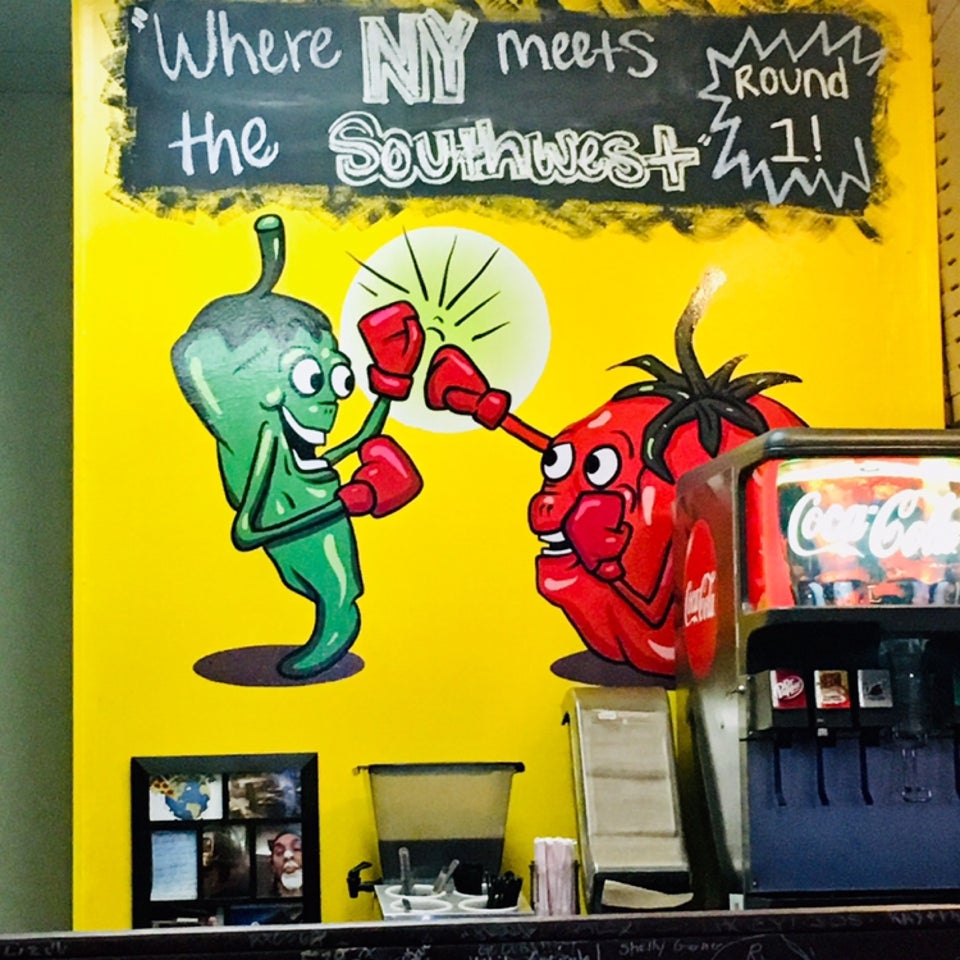 "Where NY meets
the Southwest"
Round
1!
Coca-Cola
Coca-Cola
Dr Pepper
Shelly